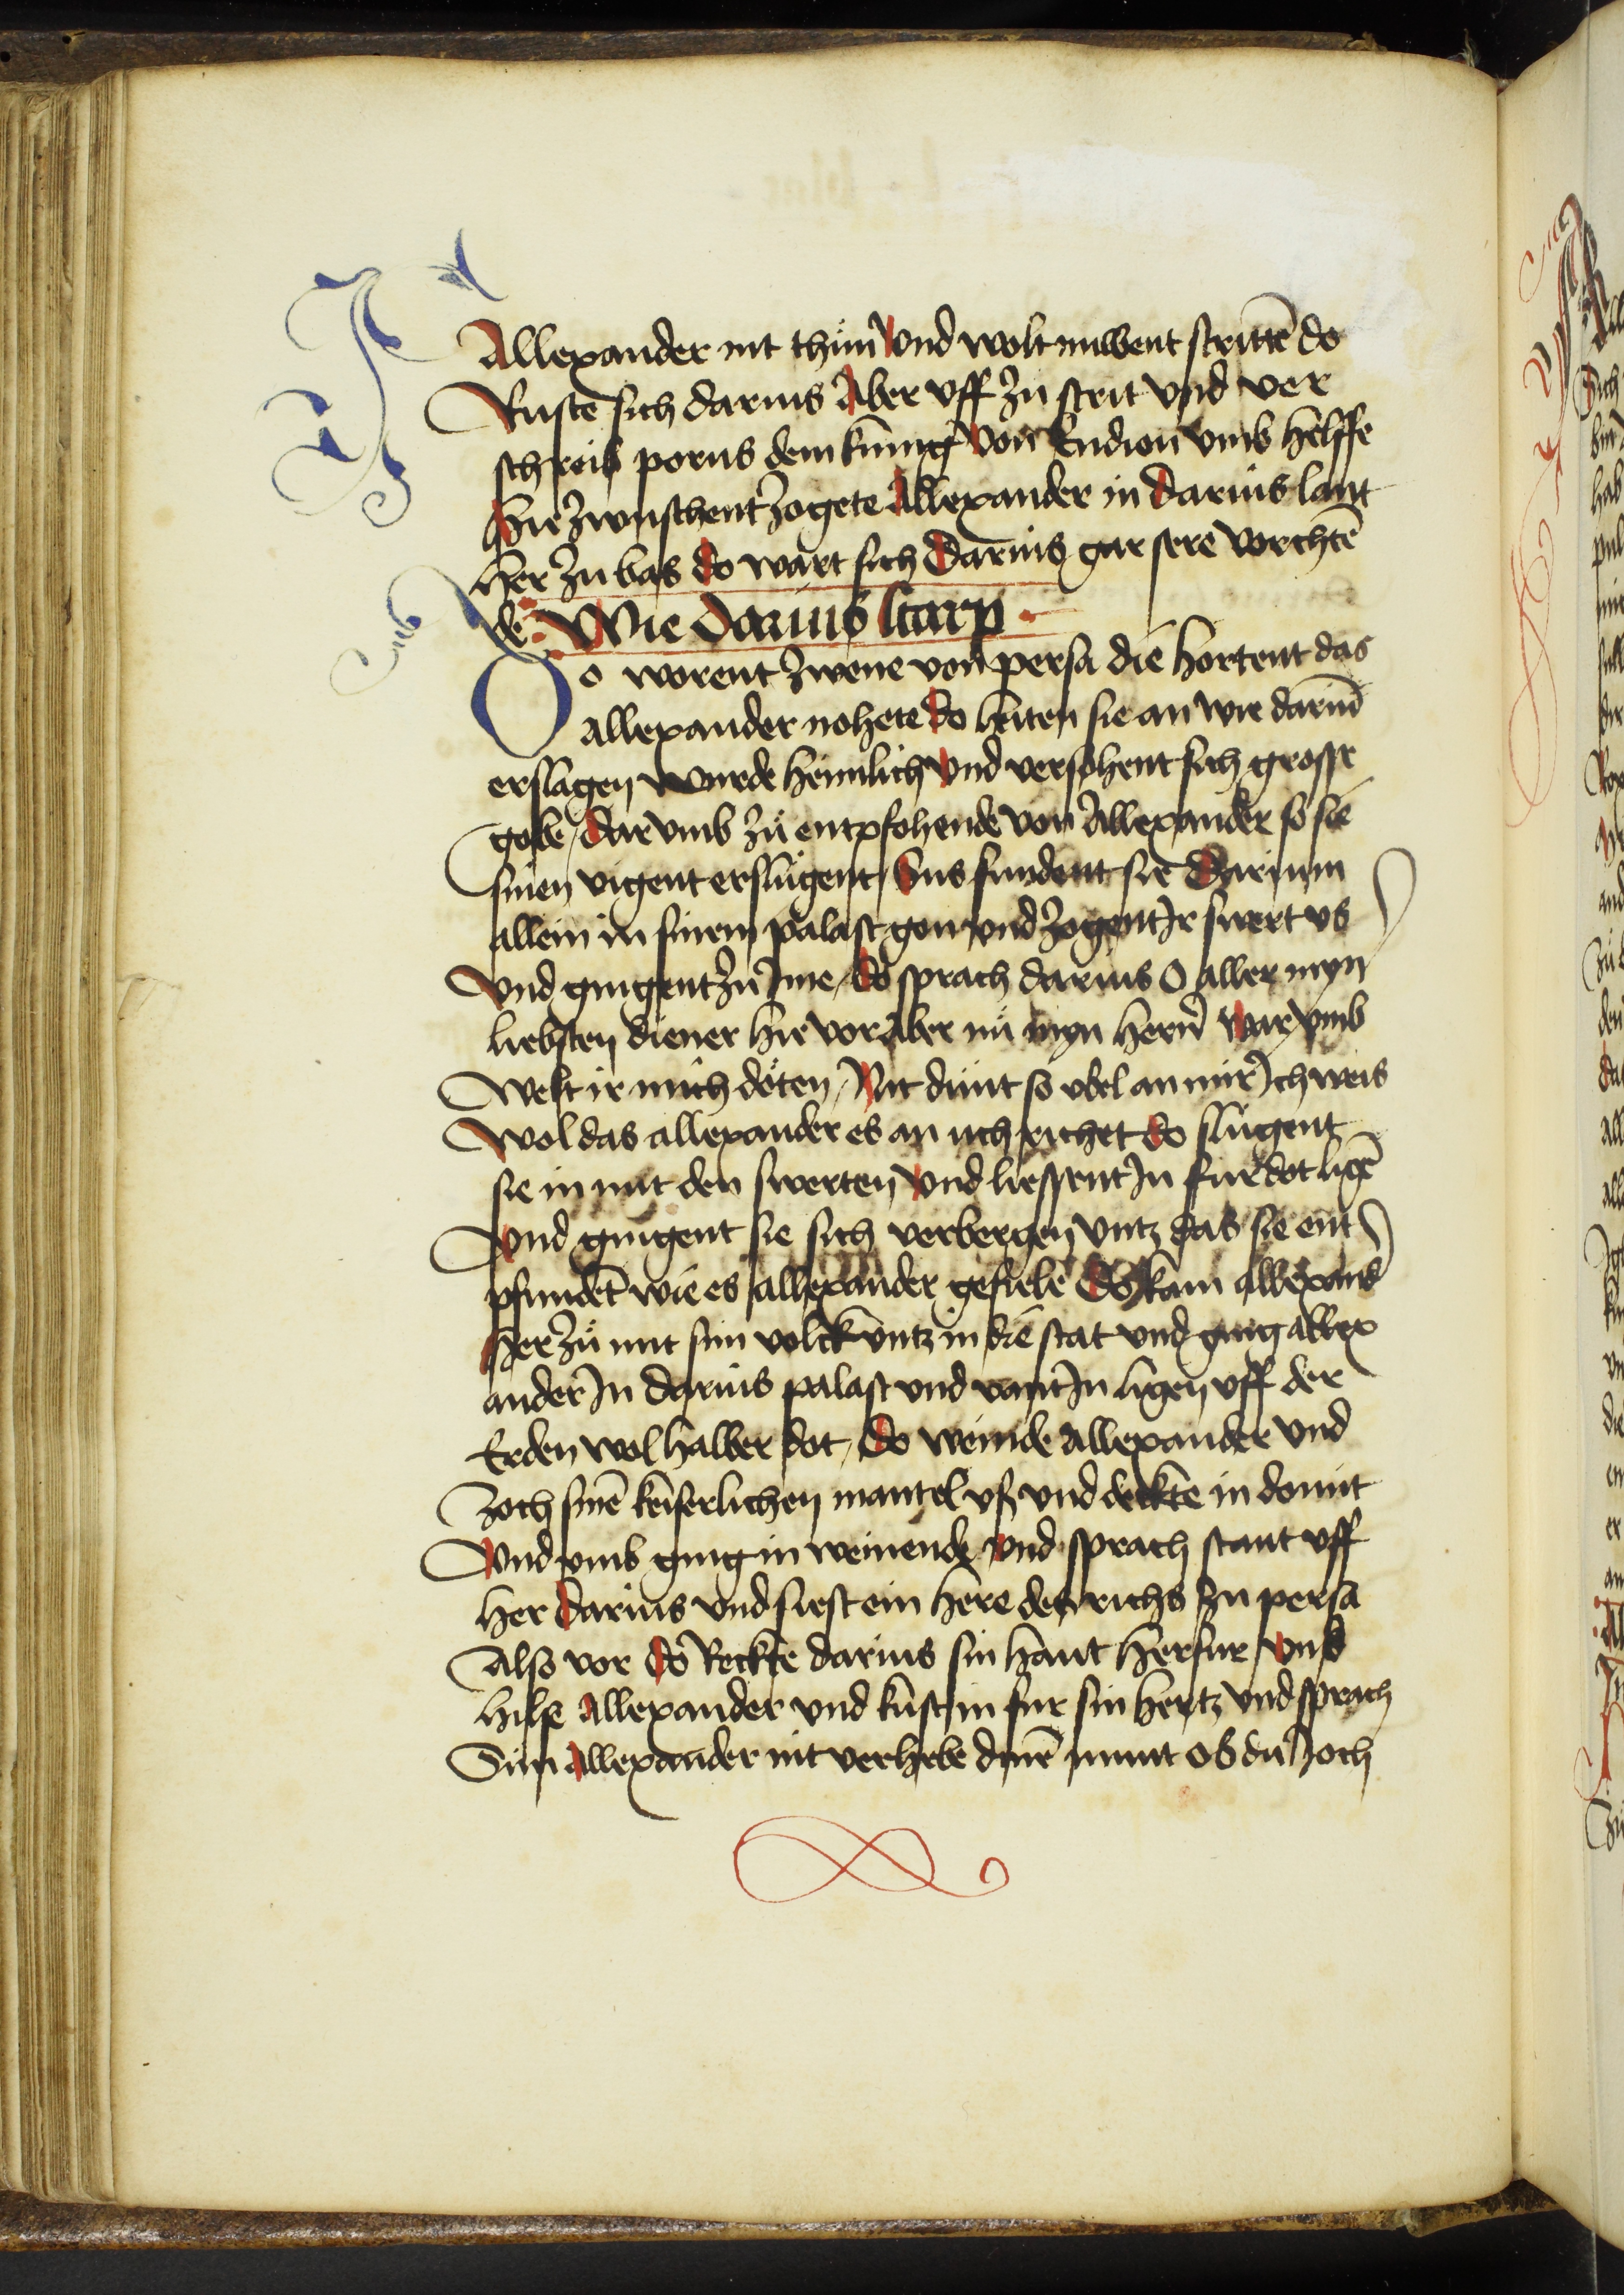 Allexander nit thuͦn Vnd wolt nuwent strittē do
Ruste sich darius Aber vff zu strit vnd ver
schreib porus dem kunnig von Endion vmb helffe
Hie zwuschent zogete Allexander in darius lant
Her zu bas do wart sich Darius gar sere vorchtē
de Wie Darius starp
Do worent zwene von persa die hortent das
allexander nohete do leiten sie an wie dariū
erslagen wurde heimlich vnd versohent sich grosse
gobe / dar vmb zuͦ entpfohende von Allexander so sie
sinen vigent erslugent / Sus fundent sie Darium
allein in sinem palast gon vnd zogent Ir swert vs
Vnd gingent zu Ime / do sprach darius O aller myn
liebsten diener hie vor Aber nuͦ myn hern̄ war vmb
Welt ir mich doͤten / Nit dunt so vbel an mir Ich weis
Wol das allexander es an uch richet do slugent
sie in mit den swerten vnd liessent In fur dot ligē
Vnd gingent sie sich verbergen vntz das sie ent
pfundēt wie es allexander gefiele Do kam allexand
Her zuͦ mit sim volck vntz in die stat vnd ging allex
ander In darius palast vnd vant In ligen vff der
Erden wol halber dot / do weinde Allexander vnd
Zoch sinē keiserlichen mantel vß vnd deckte in domit
Vnd vmb ging in weinende vnd sprach stant vff
Her Darius vnd siest ein here des richs zu persa
Also vor do Reckte darius sin hant herfur vnd
hilse Allexander vnd kust in fur sin hertz vnd sprach
Sun Allexander nit verhebe dinē munt ob du Joch